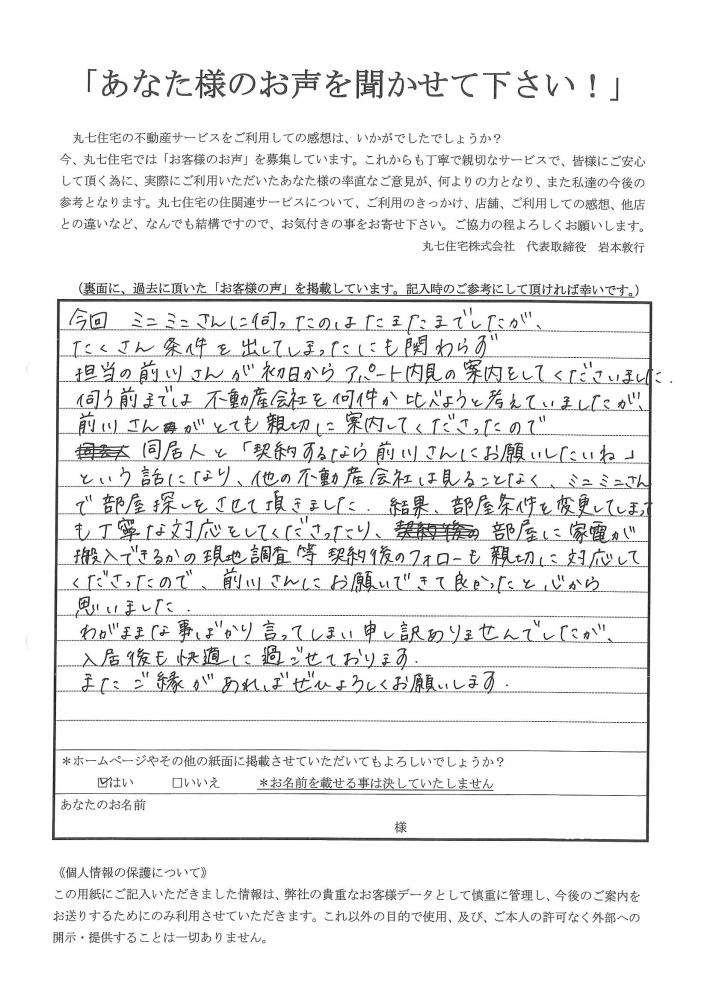 「あなた様のお声を聞かせて下さい！」
丸七住宅の不動産サービスをご利用しての感想は、いかがでしたでしょうか？
今、丸七住宅では「お客様のお声」を募集しています。これからも丁寧で親切なサービスで、皆様にご安心
して頂く為に、実際にご利用いただいたあなた様の率直なご意見が、何よりの力となり、また私達の今後の
参考となります。丸七住宅の住関連サービスについて、ご利用のきっかけ、店舗、ご利用しての感想、他店
との違いなど、なんでも結構ですので、お気付きの事をお寄せ下さい。ご協力の程よろしくお願いします。
丸七住宅株式会社　代表取締役　岩本敦行
（裏面に、過去に頂いた「お客様の声」を掲載しています。記入時のご参考にして頂ければ幸いです。）
今回 ミニミニさんに伺ったのはたまたまでしたが、
たくさん条件を出してしまったにも関わらず
担当の前川さんが初日からアパート内見の案内をしてくださいました.
伺う前までは不動産会社を何件か比べようと考えていましたが、
前川さんがとても親切に案内してくださったので
同居人と「契約するなら前川さんにお願いしたいね」
という話になり、他の不動産会社は見ることなく、ミニミニさん
で部屋探しをさせて頂きました. 結果、部屋条件を変更してしまって
も丁寧な対応をしてくださったり、部屋に家電が
搬入できるかの現地調査等契約後のフォローも親切に対応して
くださったので、前川さんにお願いできて良かったと心から
思いました.
わがままな事ばかり言ってしまい申し訳ありませんでしたが、
入居後も快適に過ごせております.
またご縁があればぜひよろしくお願いします.
＊ホームページやその他の紙面に掲載させていただいてもよろしいでしょうか？
☑はい　□いいえ　＊お名前を載せる事は決していたしません
あなたのお名前
様
《個人情報の保護について》
この用紙にご記入いただきました情報は、弊社の貴重なお客様データとして慎重に管理し、今後のご案内を
お送りするためにのみ利用させていただきます。これ以外の目的で使用、及び、ご本人の許可なく外部への
開示・提供することは一切ありません。